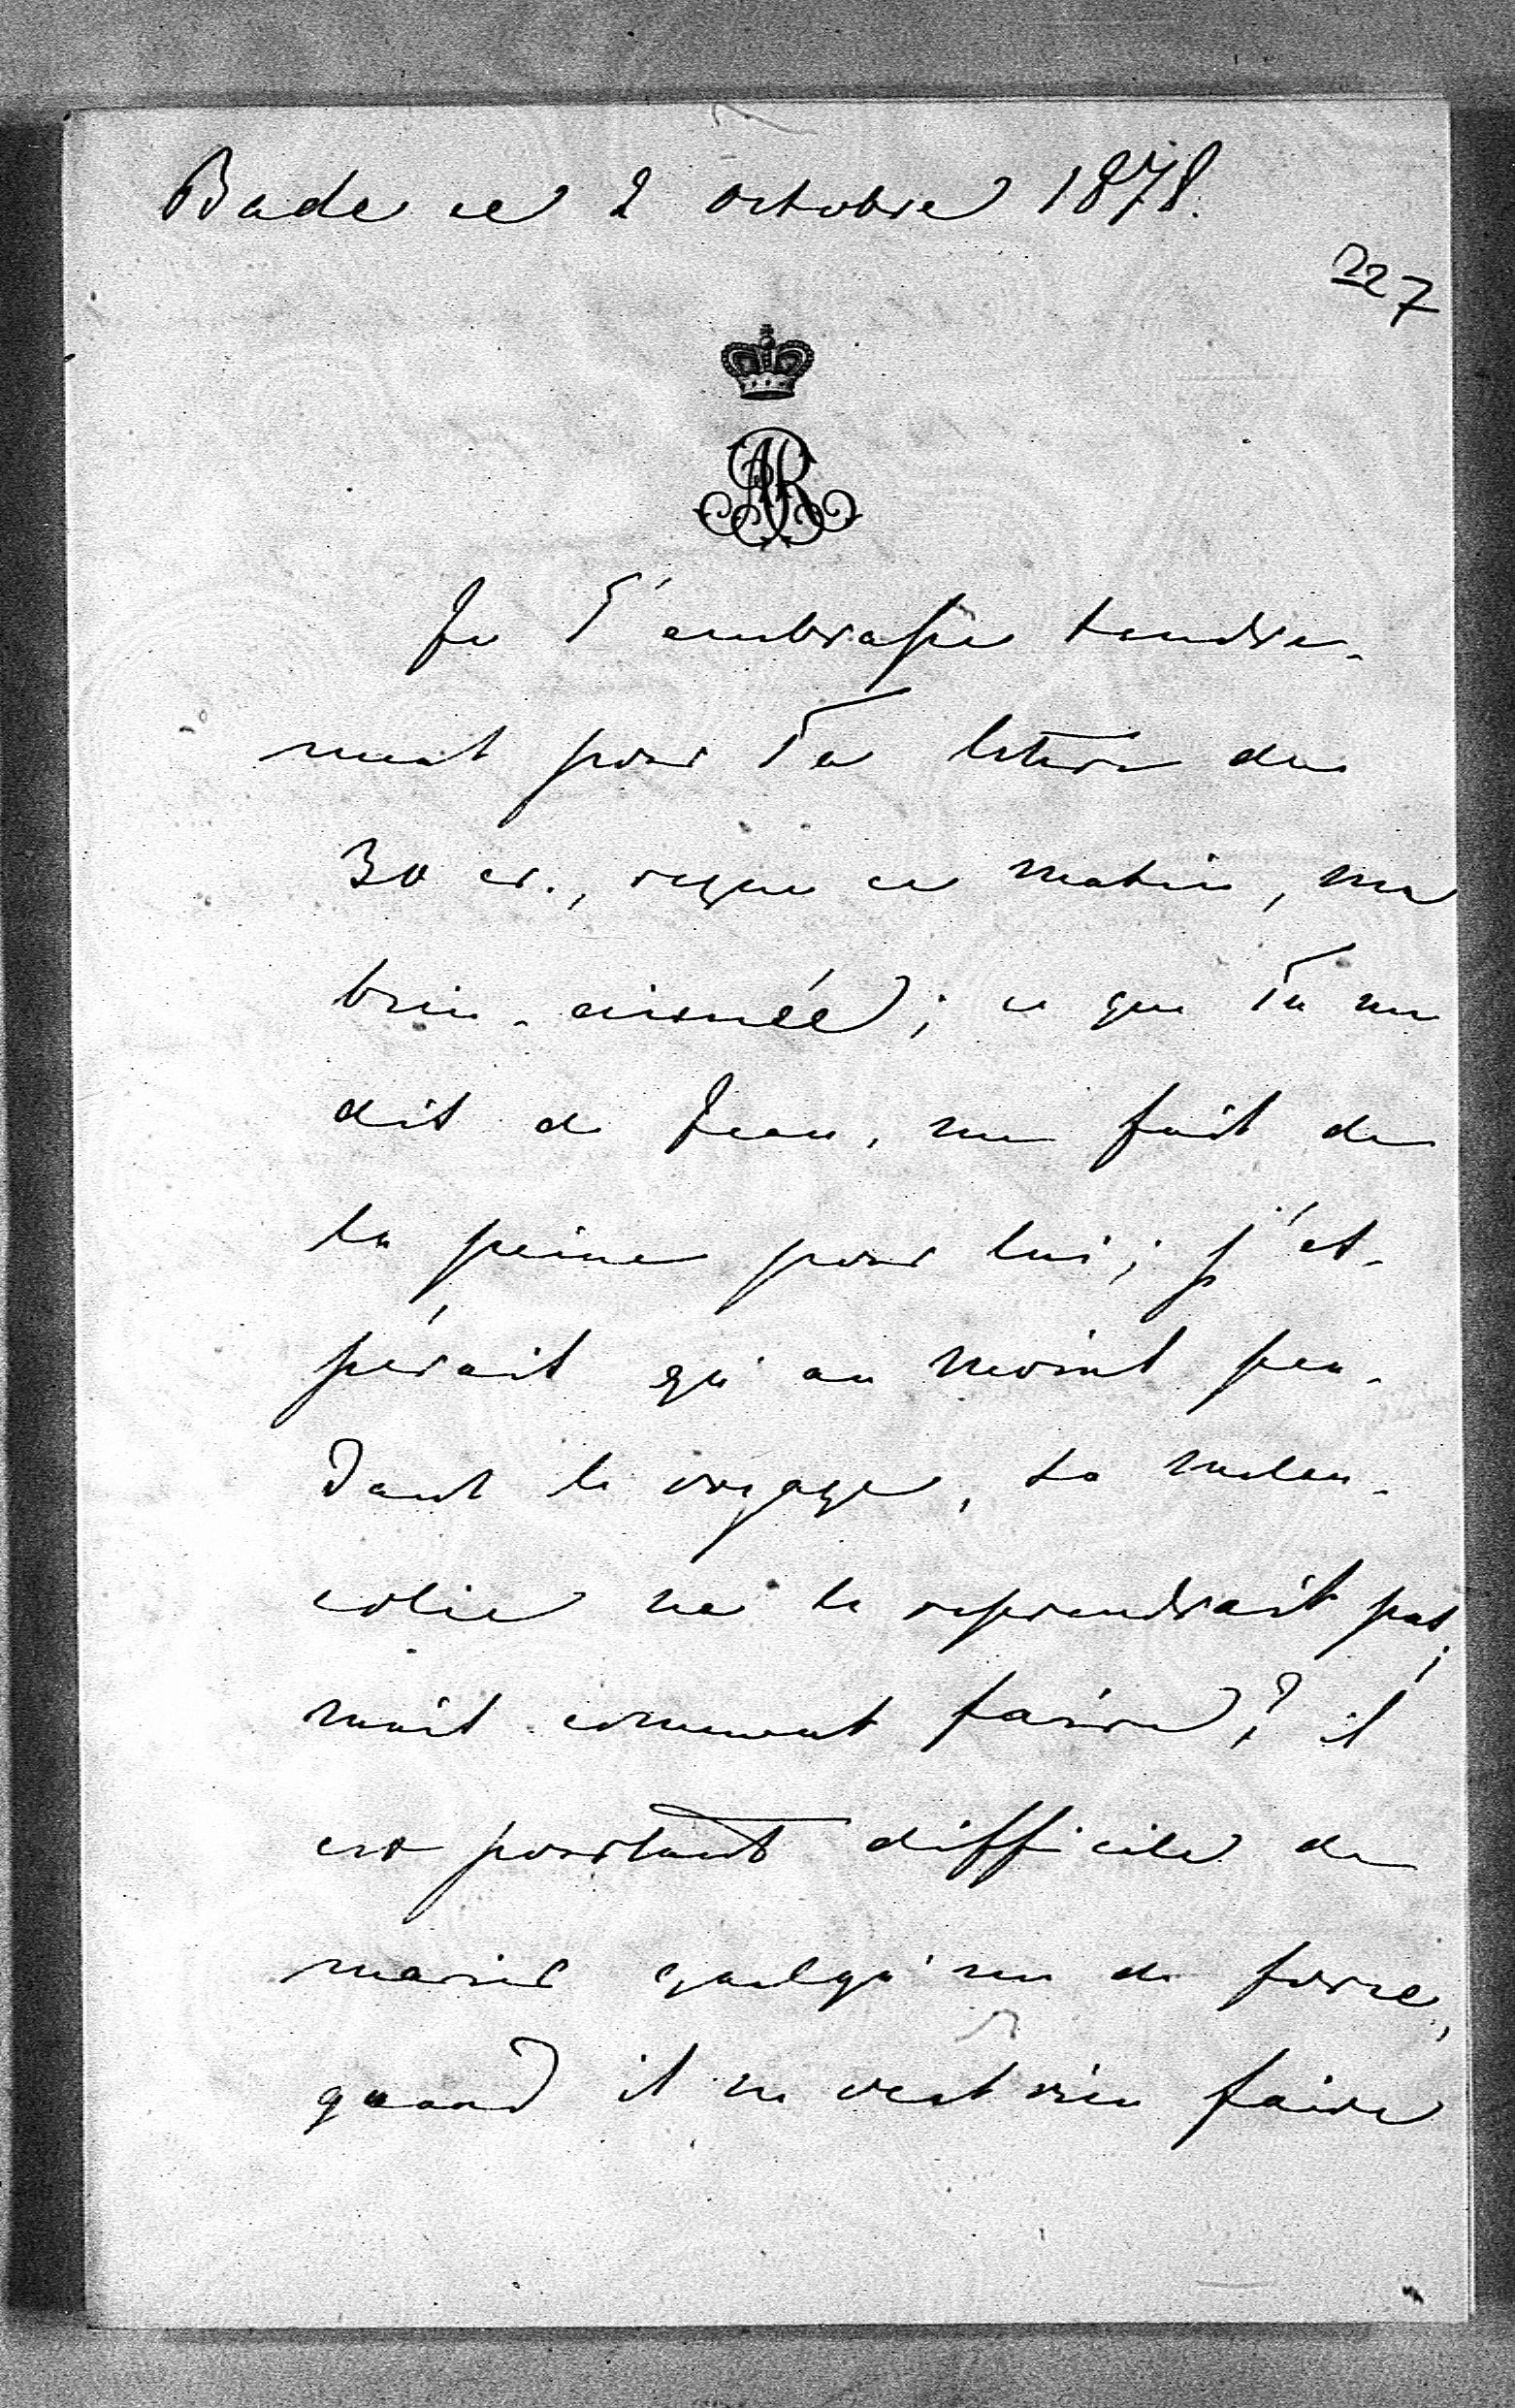 Bade ce 2 octobre 1878.
227
AR
Je T'embrasse tendre-
ment pour Ta lettre du
30 cr., reçue ce matin, ma
bien-aimée; ce que Tu me
dis de Jean, me fait de
la peine pour lui; j'es-
pérais qu'au moins pen-
dant le voyage, sa mélan-
colie ne le reprendrait pas,
mais comment faire? il
est pourtant difficile de
marier quelqu'un de force,
quand il ne veut rien faire